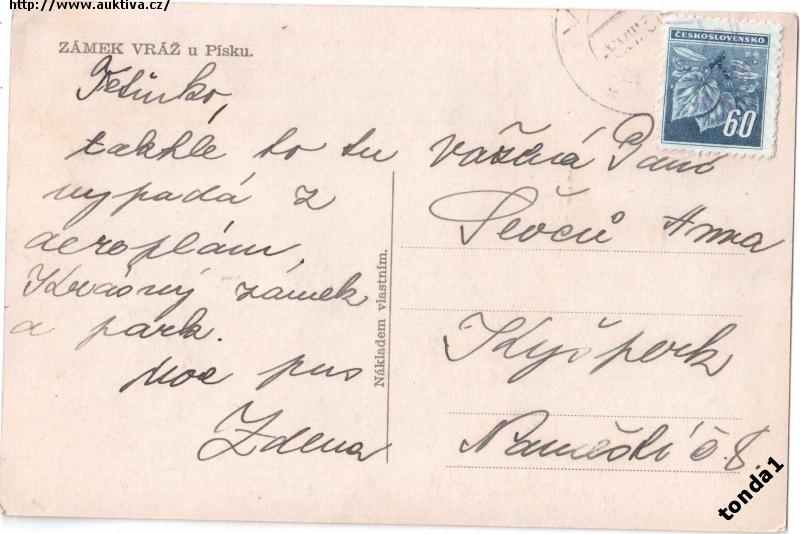 http://www.auktiva.cz/
ZÁMEK VRÁŽ u Písku.
Tetinko,
takhle to tu
vypadá z
aeroplánu.
Krásný zámek
a park.
Moc pus
Zdena
Nákladem vlastním.
ČESKOSLOVENSKO
60
vážená Paní
Ševců Anna
Kyšperk
Naměstí č 8.
tonda1